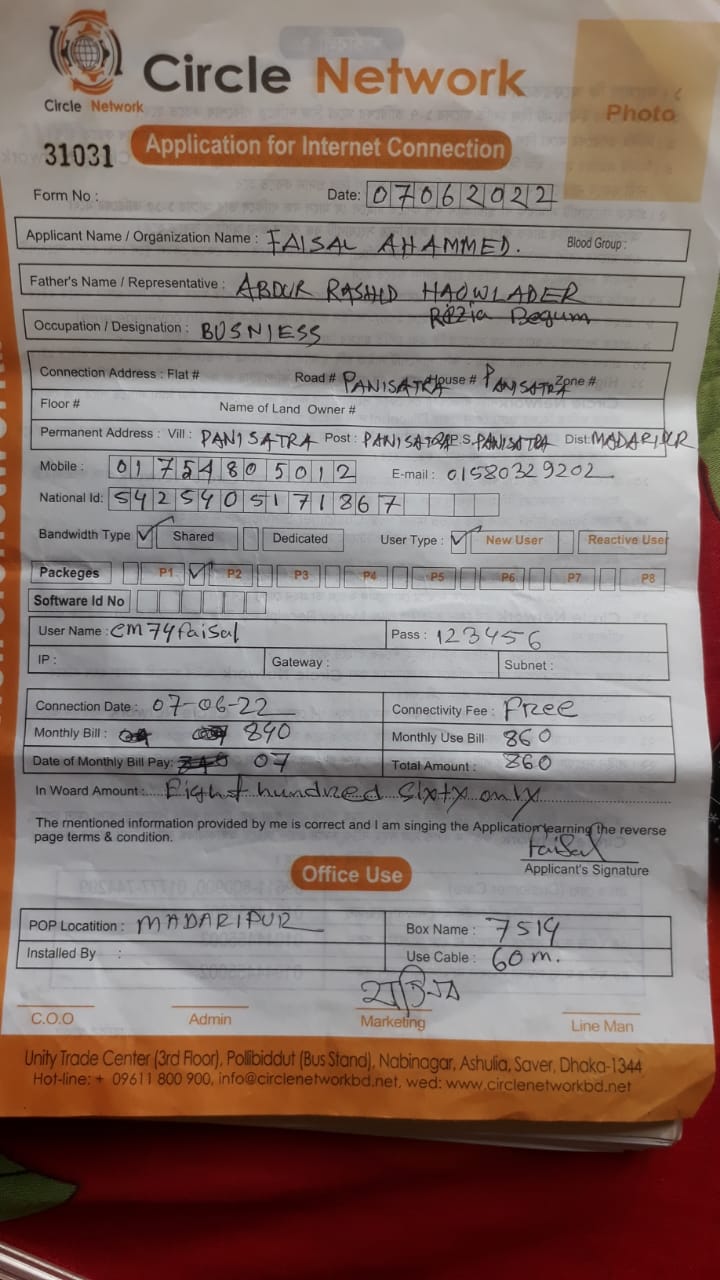 Circle Network
Circle Network
Photo
31031
Application for Internet Connection
Form No :
Date: 07062022
Applicant Name / Organization Name : FAISAL AHAMMED.
Blood Group :
Father's Name / Representative : ABDUR RASHID HAOWLADER
Razia Begum
Occupation / Designation : BUSNIESS
Connection Address : Flat # Road # PANISATRA House # PANISATRA Zone #
Floor # Name of Land Owner #
Permanent Address : Vill : PANISATRA Post : PANISATRA P.S. PANISATRA Dist: MADARIPUR
Mobile : 01754805012 E-mail : 01580329202
National Id: 5425405171867
Bandwidth Type Shared Dedicated User Type : New User Reactive User
Packeges P1 P2 P3 P4 P5 P6 P7 P8
Software Id No
User Name : cm74faisal Pass : 123456
IP : Gateway : Subnet :
Connection Date : 07-06-22 Connectivity Fee : Free
Monthly Bill : 840 Monthly Use Bill 860
Date of Monthly Bill Pay: 07 Total Amount : 860
In Woard Amount :..... Eight hundred sixty only
The mentioned information provided by me is correct and I am singing the Application learning the reverse
page terms & condition.
Faisal
Applicant's Signature
Office Use
POP Locatition : MADARIPUR Box Name : 7519
Installed By : Use Cable : 60 m.
C.O.O Admin Marketing Line Man
Unity Trade Center (3rd Floor), Pollibiddut (Bus Stand), Nabinagar, Ashulia, Saver, Dhaka-1344
Hot-line: + 09611 800 900, info@circlenetworkbd.net, wed: www.circlenetworkbd.net